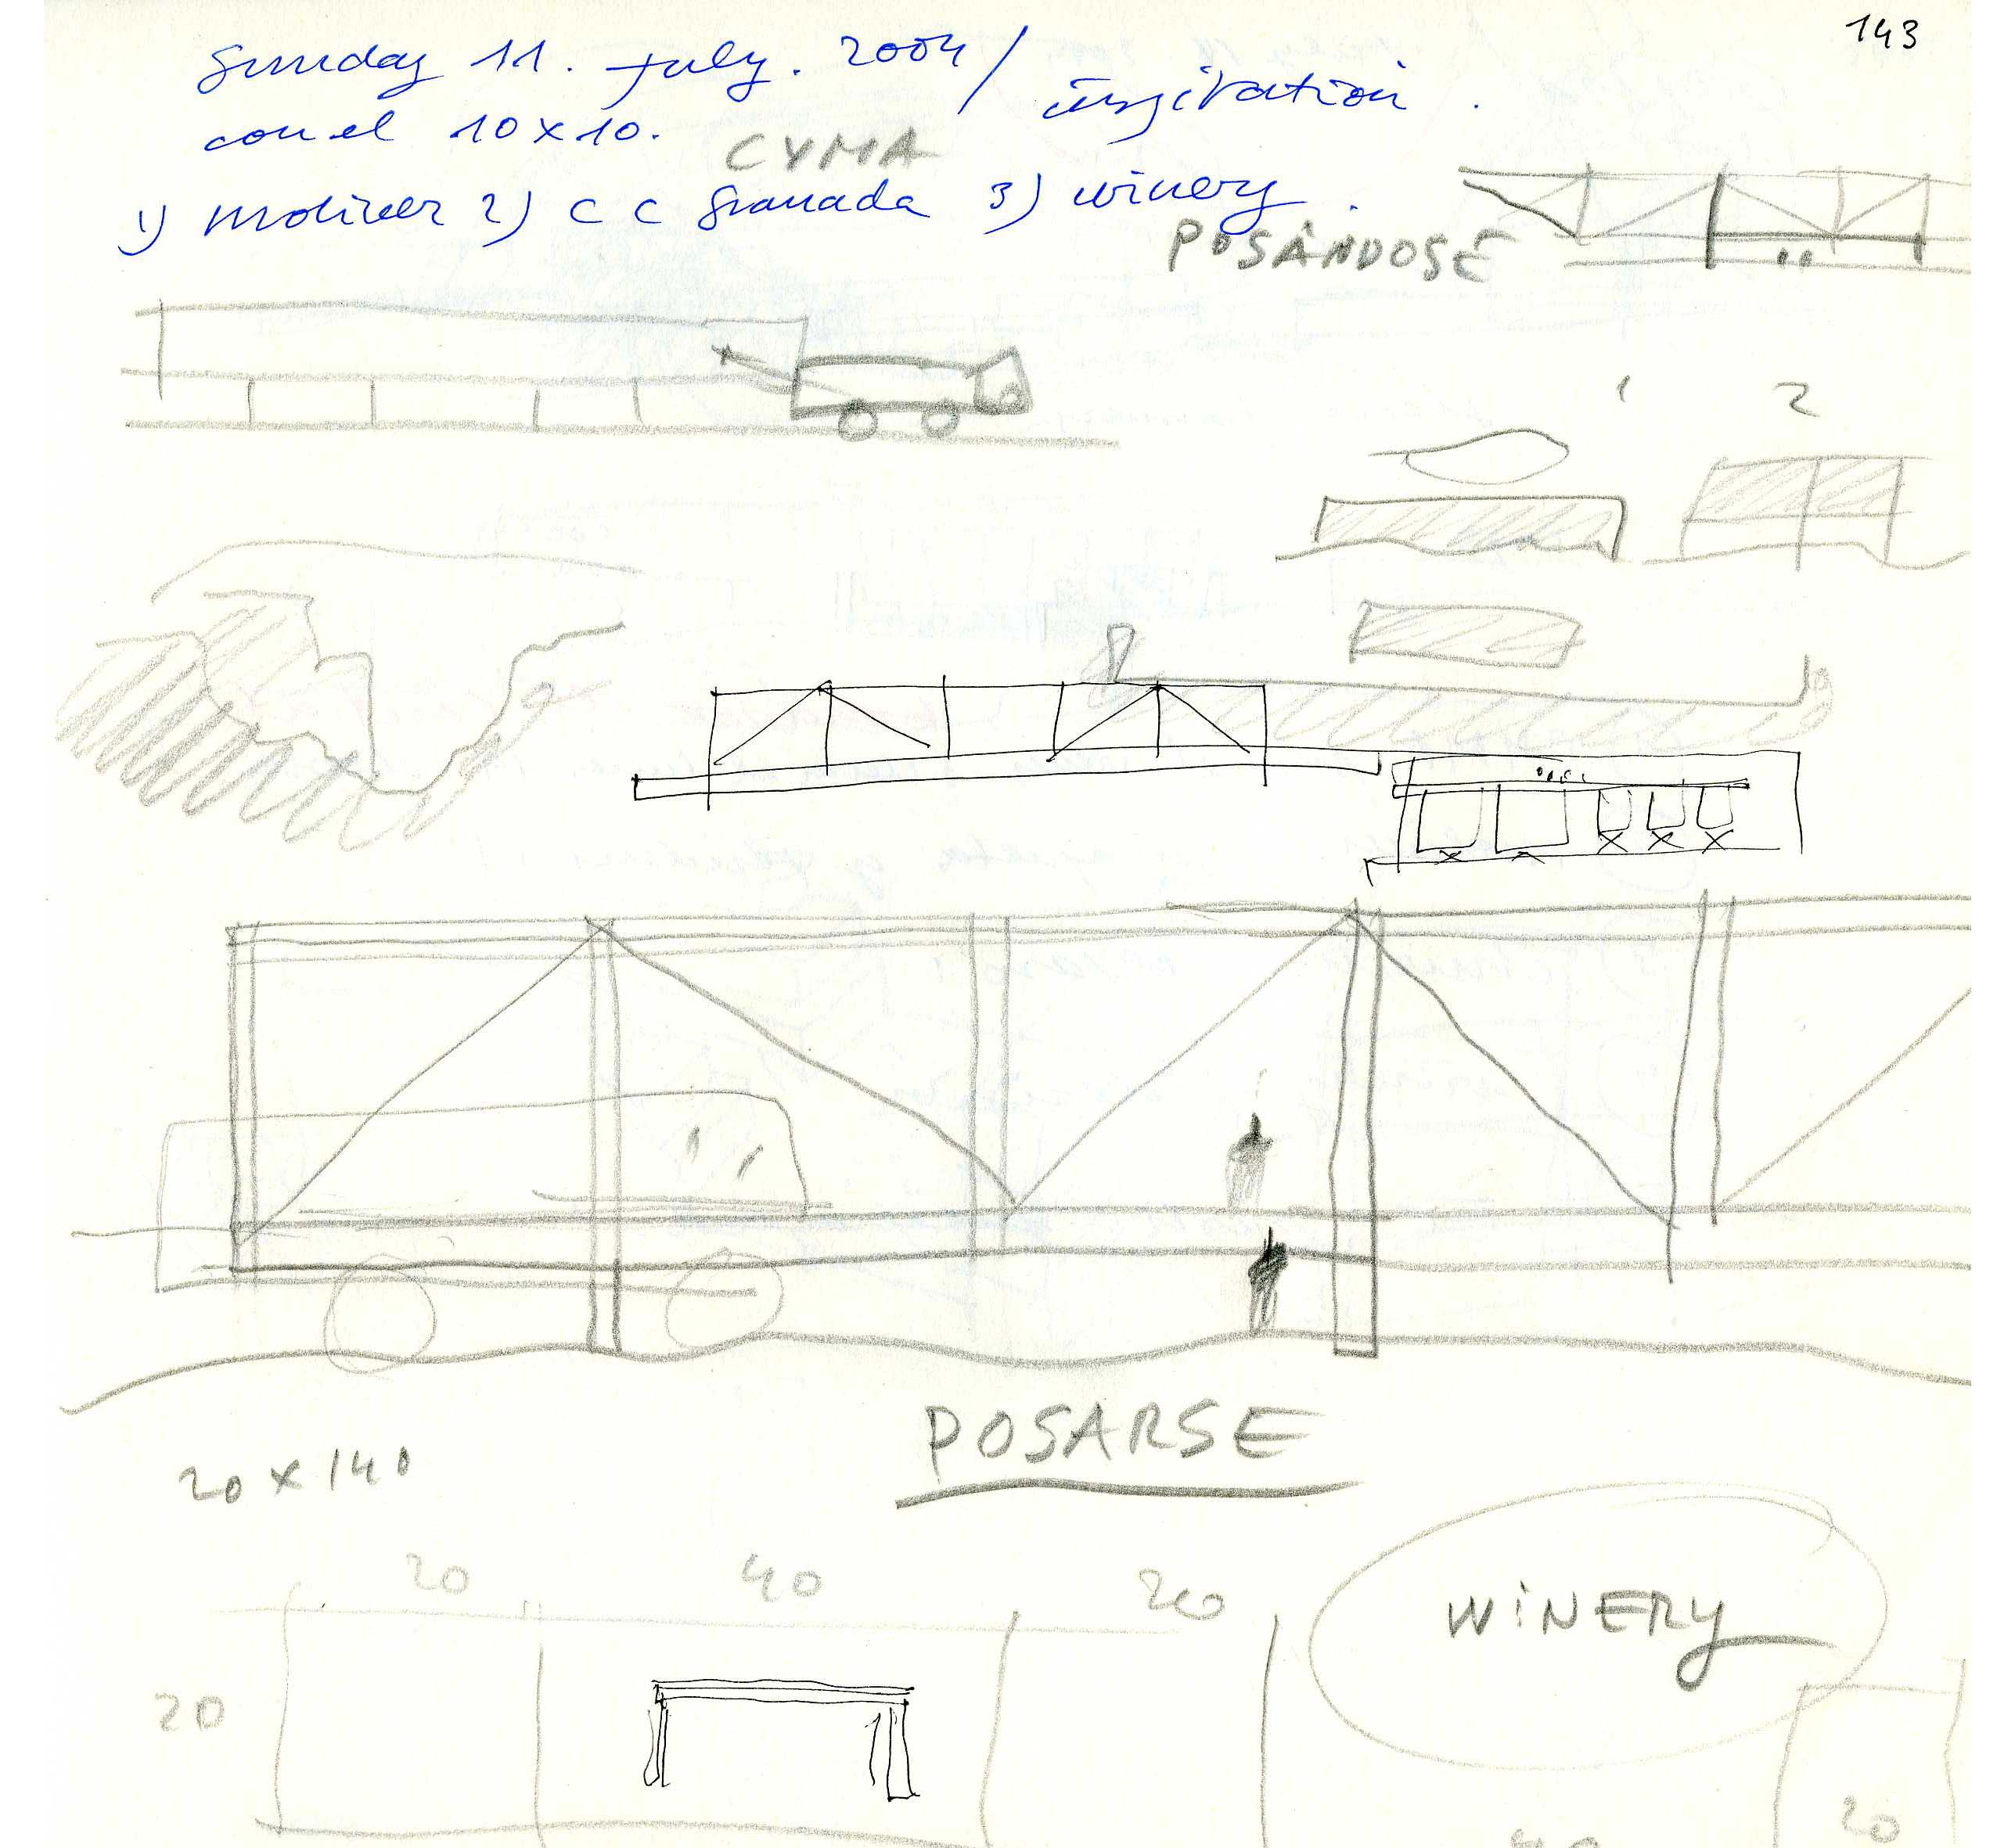 143
Sunday 11. July. 2004 / inspiration.
con el 10x10.
CYMA
1) moliner 2) CC Granada 3) winery.
POSÁNDOSE
1 2
POSARSE
20 x 140
20 40 20
WINERY
20
20